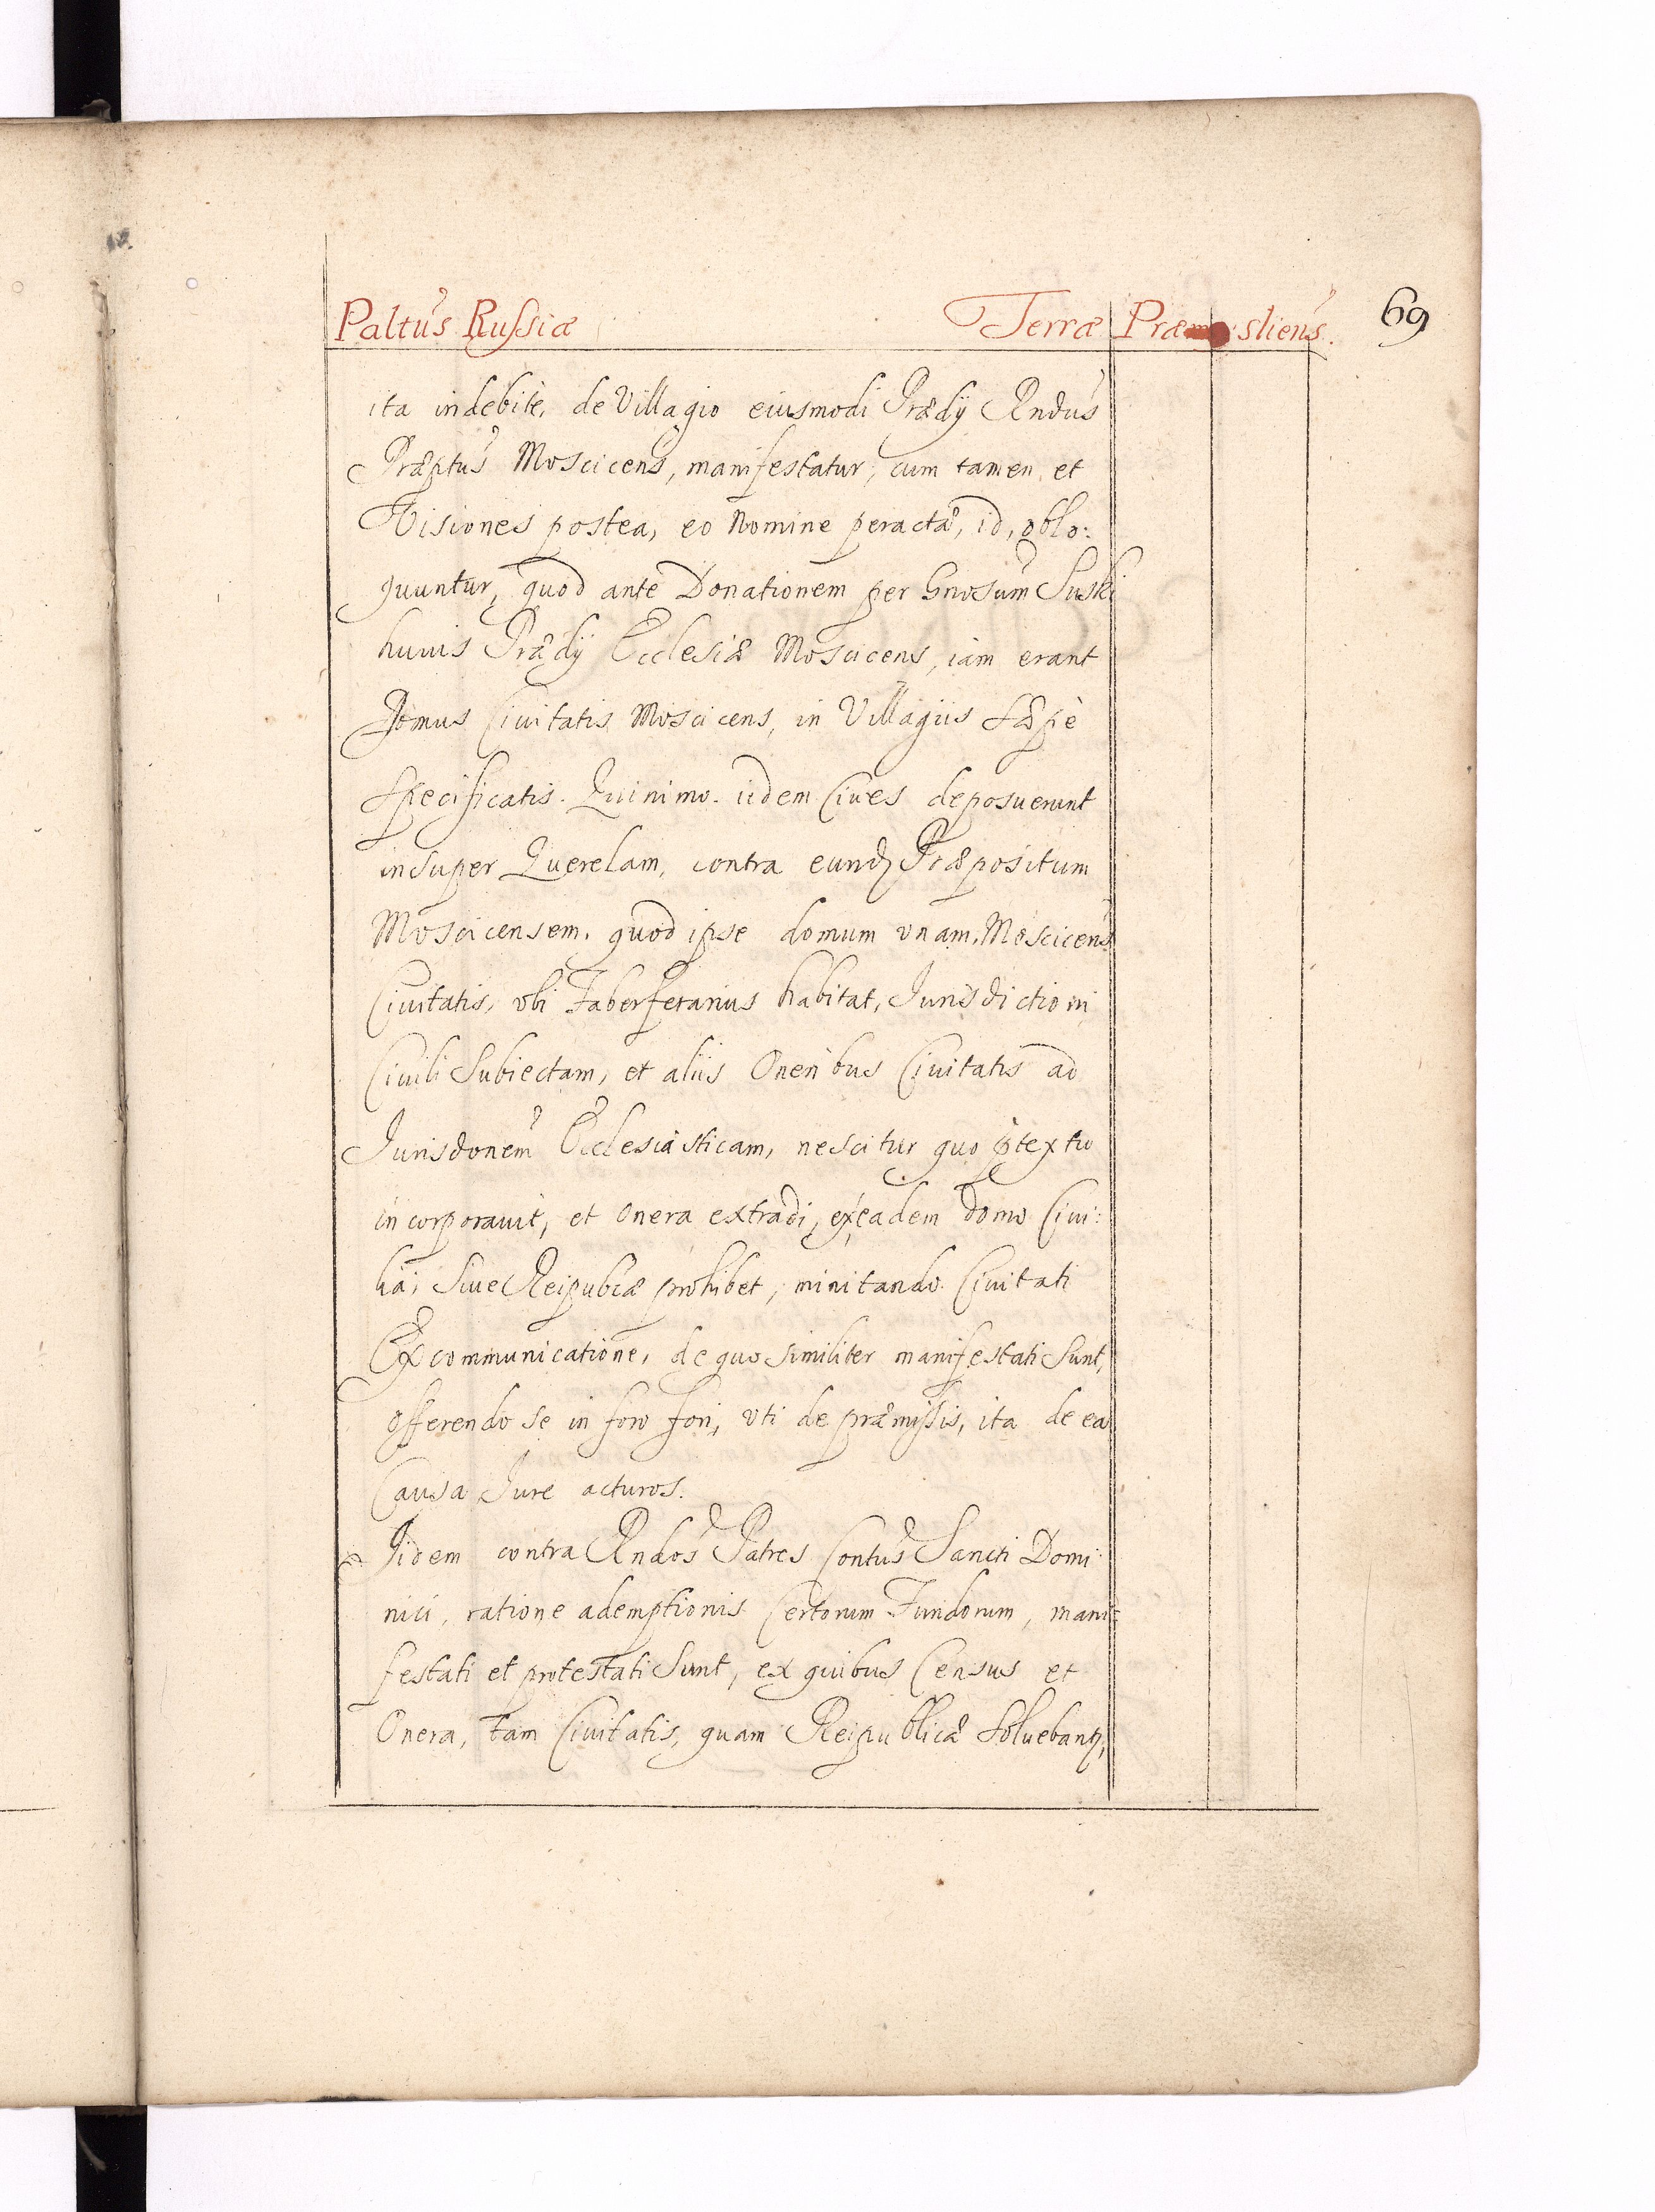 Paltus Russiæ Terræ Præm sliens. 69
ita indebite, de Villagio eiusmodi Prædij Rndus
Præptus Moscicens, manifestatur, cum tamen et
Visiones postea, eo Nomine peractæ, id, oblo:
quuntur, quod ante Donationem per Gnosum Suski
huius Prædij Ecclesiæ Moscicens, iam erant
Domus Civitatis Moscicens, in Villagiis sæpè
specificatis. Quinimo. iidem Cives deposuerunt
insuper Querelam, contra eundq Præpositum
Moscicensem. quod ipse domum vnam, Moscicens
Civitatis, vbi Faber ferrarius habitat, Jurisdictioni
Civili Subiectam, et aliis Oneribus Civitatis ad
Jurisdonem Ecclesiasticam, nescitur quo ptextu
incorporavit, et Onera extradi, ex eadem domo Civi:
lia, Sive Reipubcæ prohibet, minitando Civitati
Excommunicatione, de quo similiter manifestati Sunt,
offerendo se in foro fori, vti de præmissis, ita de ea
Causa Jure acturos.
Iidem contra Rndos Patres Contus Sancti Domi
nici, ratione ademptionis Certorum Fundorum, mani:
festati et protestati Sunt, ex quibus Census et
Onera, tam Civitatis, quam Reipublicæ solvebantq,